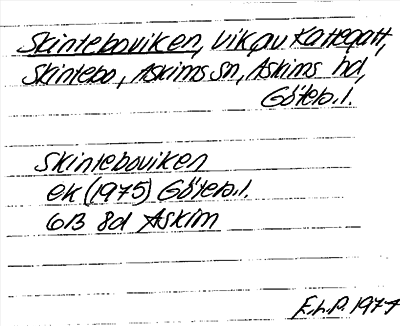 Skinteboviken, vik av Kattegatt,
Skintebo, Askims sn, Askims hd,
Göteb.l.
Skinteboviken
ek (1975) Göteb.l.
6B 8d Askim
F.h.P. 1977